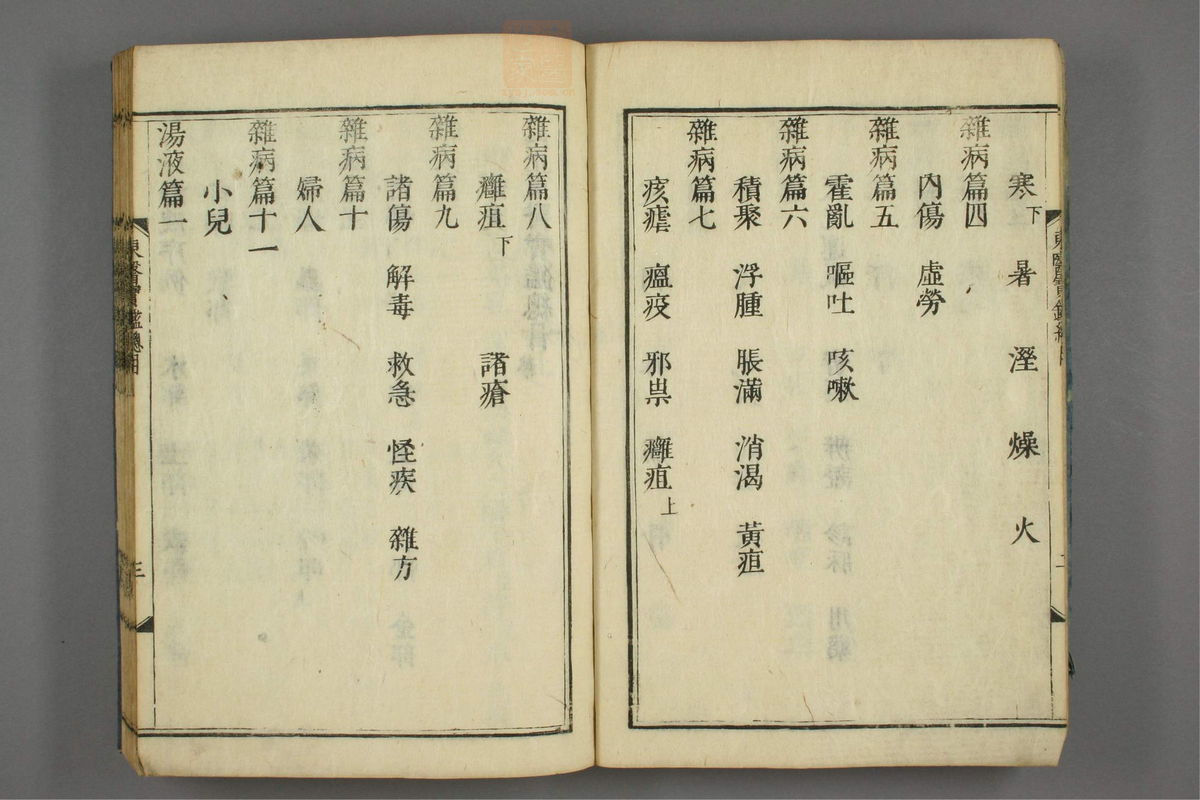 寒下 暑 溼 燥 火
雜病篇四
內傷 虛勞
雜病篇五
霍亂 嘔吐 咳嗽
雜病篇六
積聚 浮腫 脹滿 消渴 黃疸
雜病篇七
痎瘧 瘟疫 邪祟 癰疽上
雜病篇八
癰疽下 諸瘡
雜病篇九
諸傷 解毒 救急 怪疾 雜方
雜病篇十
婦人
雜病篇十一
小兒
湯液篇一
東醫寶鑑總目
三